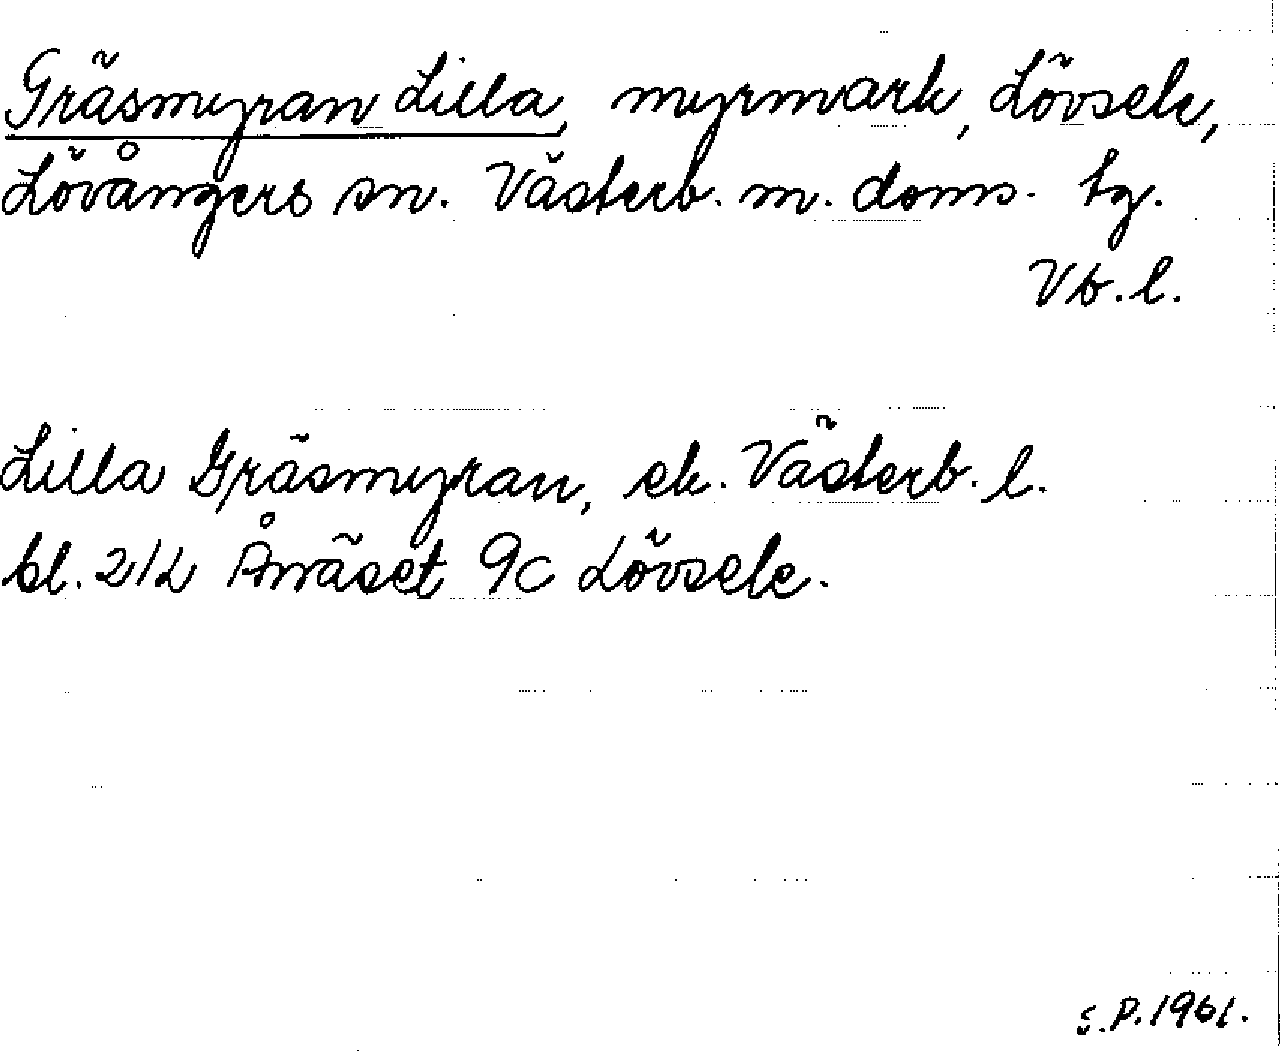 Gräsmyran Lilla, myrmark, Lövsele,
Lövångers sn. Västerb. m. doms. tg.
Vb. l.
Lilla Gräsmyran, ek. Västerb. l.
bl. 21L Ånäset 9c Lövsele.
S.P. 1961.